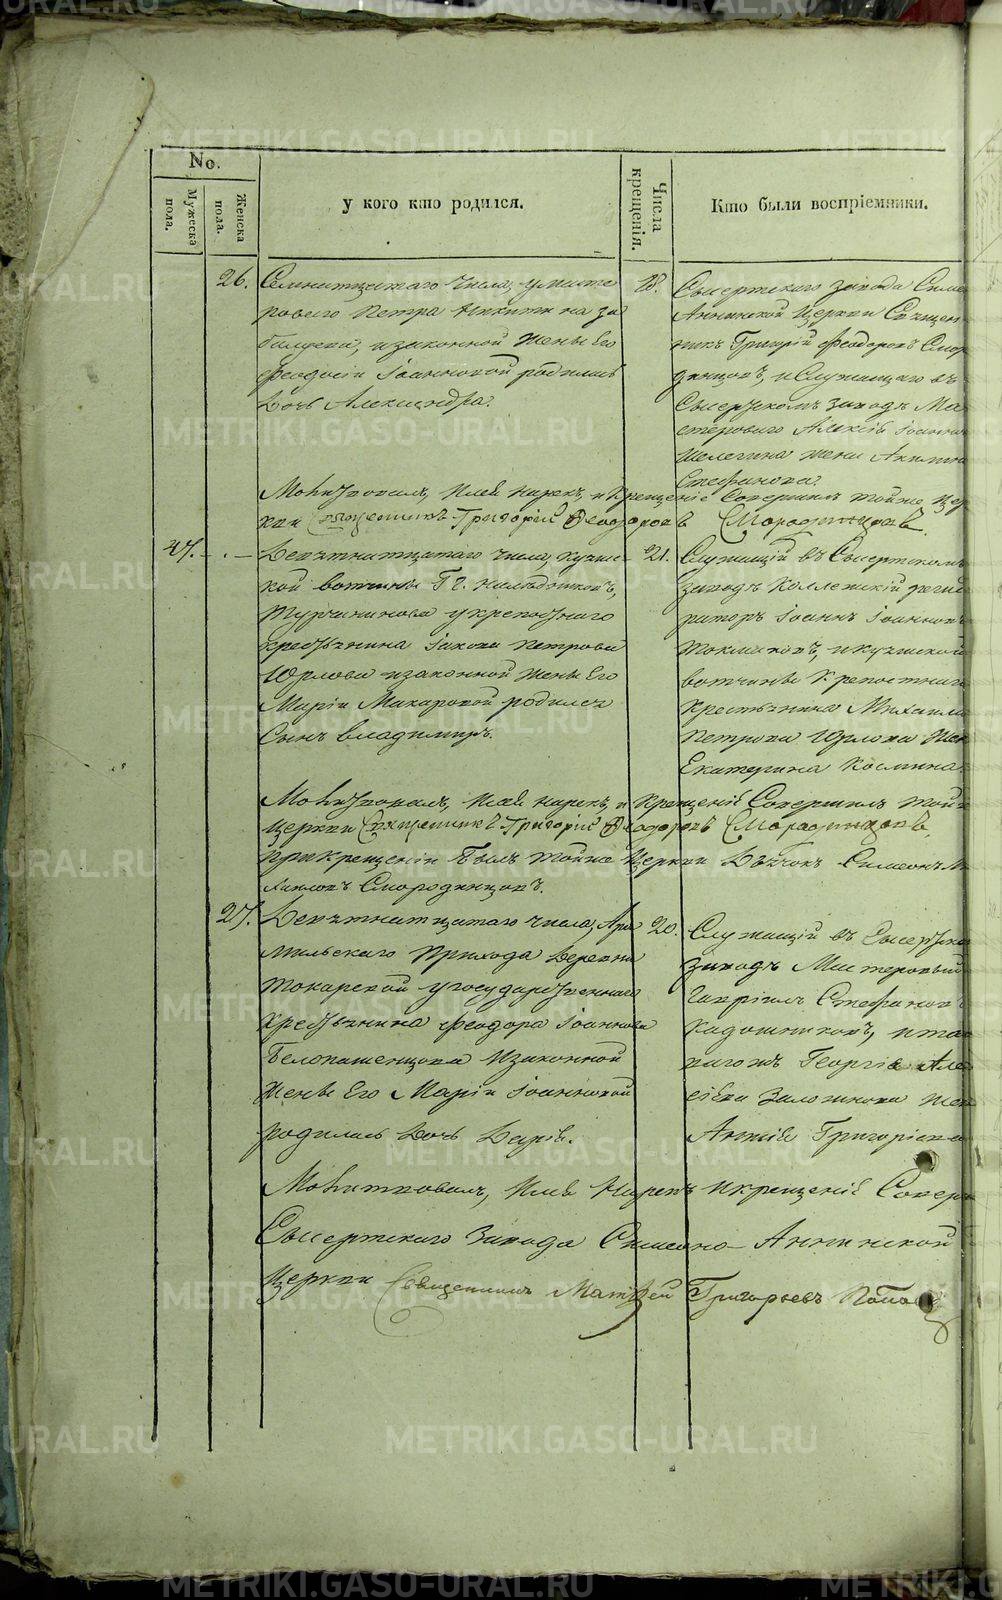 No.
Мужеска пола.
Женска пола.
у кого кто родился.
Числа крещенія.
Кто были воспріемники.
26.
Семнатцатаго числа, у масте
роваго Петра Никитина За
и законной жены Его
Феодосіи Іоанновой родилась
Дочь Александра.
18.
Сысертскаго завода Симе
Аннинской Церкви Священ
никъ Григорій Феодоровъ Смор
динцовъ, и Служащаго въ
Сысертскомъ заводѣ Ма
стероваго Алексѣя Іоанно
жена Акилина
Стефанова.
Молитвовалъ, Имя нарекъ, и Крещеніе Совершилъ тойже Цер
кви Священникъ Григорій Феодоровъ Смородинцовъ
47.
Девятнатцатаго числа,
кой вотчины Гг. Наслѣдниковъ,
Турчанинова у крепостнаго
крестьянина Іакова Петрова
Юрлова и законной жены Его
Маріи Макаровой родился
Сынъ Владимиръ.
21.
Служащій въ Сысертскомъ
заводѣ Коллежскій регис
раторъ Іоаннъ Іоанновъ
Токмаковъ, и
вотчины Крепостнаго
Крестьянина Михаила
Петрова Юрлова Жен
Екатерина Космина
Молитвовалъ, Имя нарекъ, и Крещеніе Совершилъ той
Церкви Священникъ Григорій Феодоровъ Смородинцовъ,
При крещеніи былъ тойже Церкви Дьячокъ Симеонъ Ми
хаиловъ Смородинцовъ.
27.
Девятнатцатаго числа, Ара
мильскаго Прихода Деревни
Токарской у государственнаго
крестьянина Феодора Іоаннова
Белопашенцова и законной
жены Его Маріи Іоанновой
родилась Дочь Дарія.
20.
Служащій въ Сысертско
заводѣ Мастеровый
Гавріилъ Стефановъ
Кадошниковъ, и та
когожъ Георгія Але
жен
Анна Григоріева
Молитвовалъ, Имя Нарекъ и крещеніе Совер
Сысертскаго Завода Симеоно-Аннинской
Церкви Священникъ Матѳей Григорьевъ Попо
METRIKI.GASO-URAL.RU